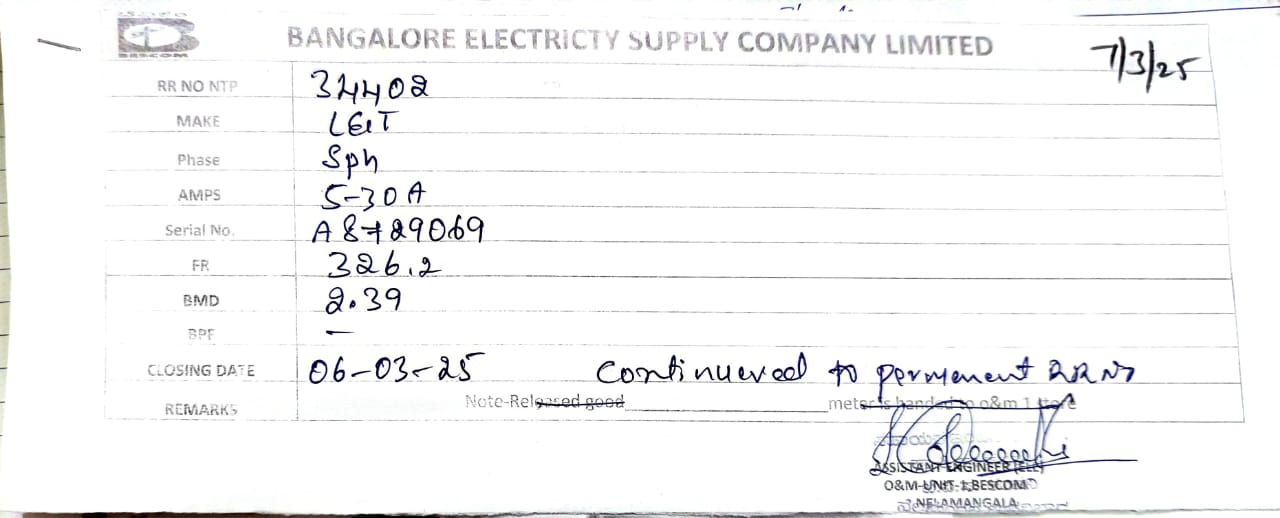 BESCOM
BANGALORE ELECTRICTY SUPPLY COMPANY LIMITED
7/3/25
RR NO NTP 34402
MAKE L&T
Phase Sph
AMPS 5-30A
Serial No. A8729069
FR 326.2
BMD 2.39
BPF —
CLOSING DATE 06-03-25 Continueved to permenent RRNo
REMARKS Note-Released good ____________ meter is handed to o&m 1 store
ASSISTANT ENGINEER (ELE)
O&M-UNIT-1,BESCOM
NELAMANGALA